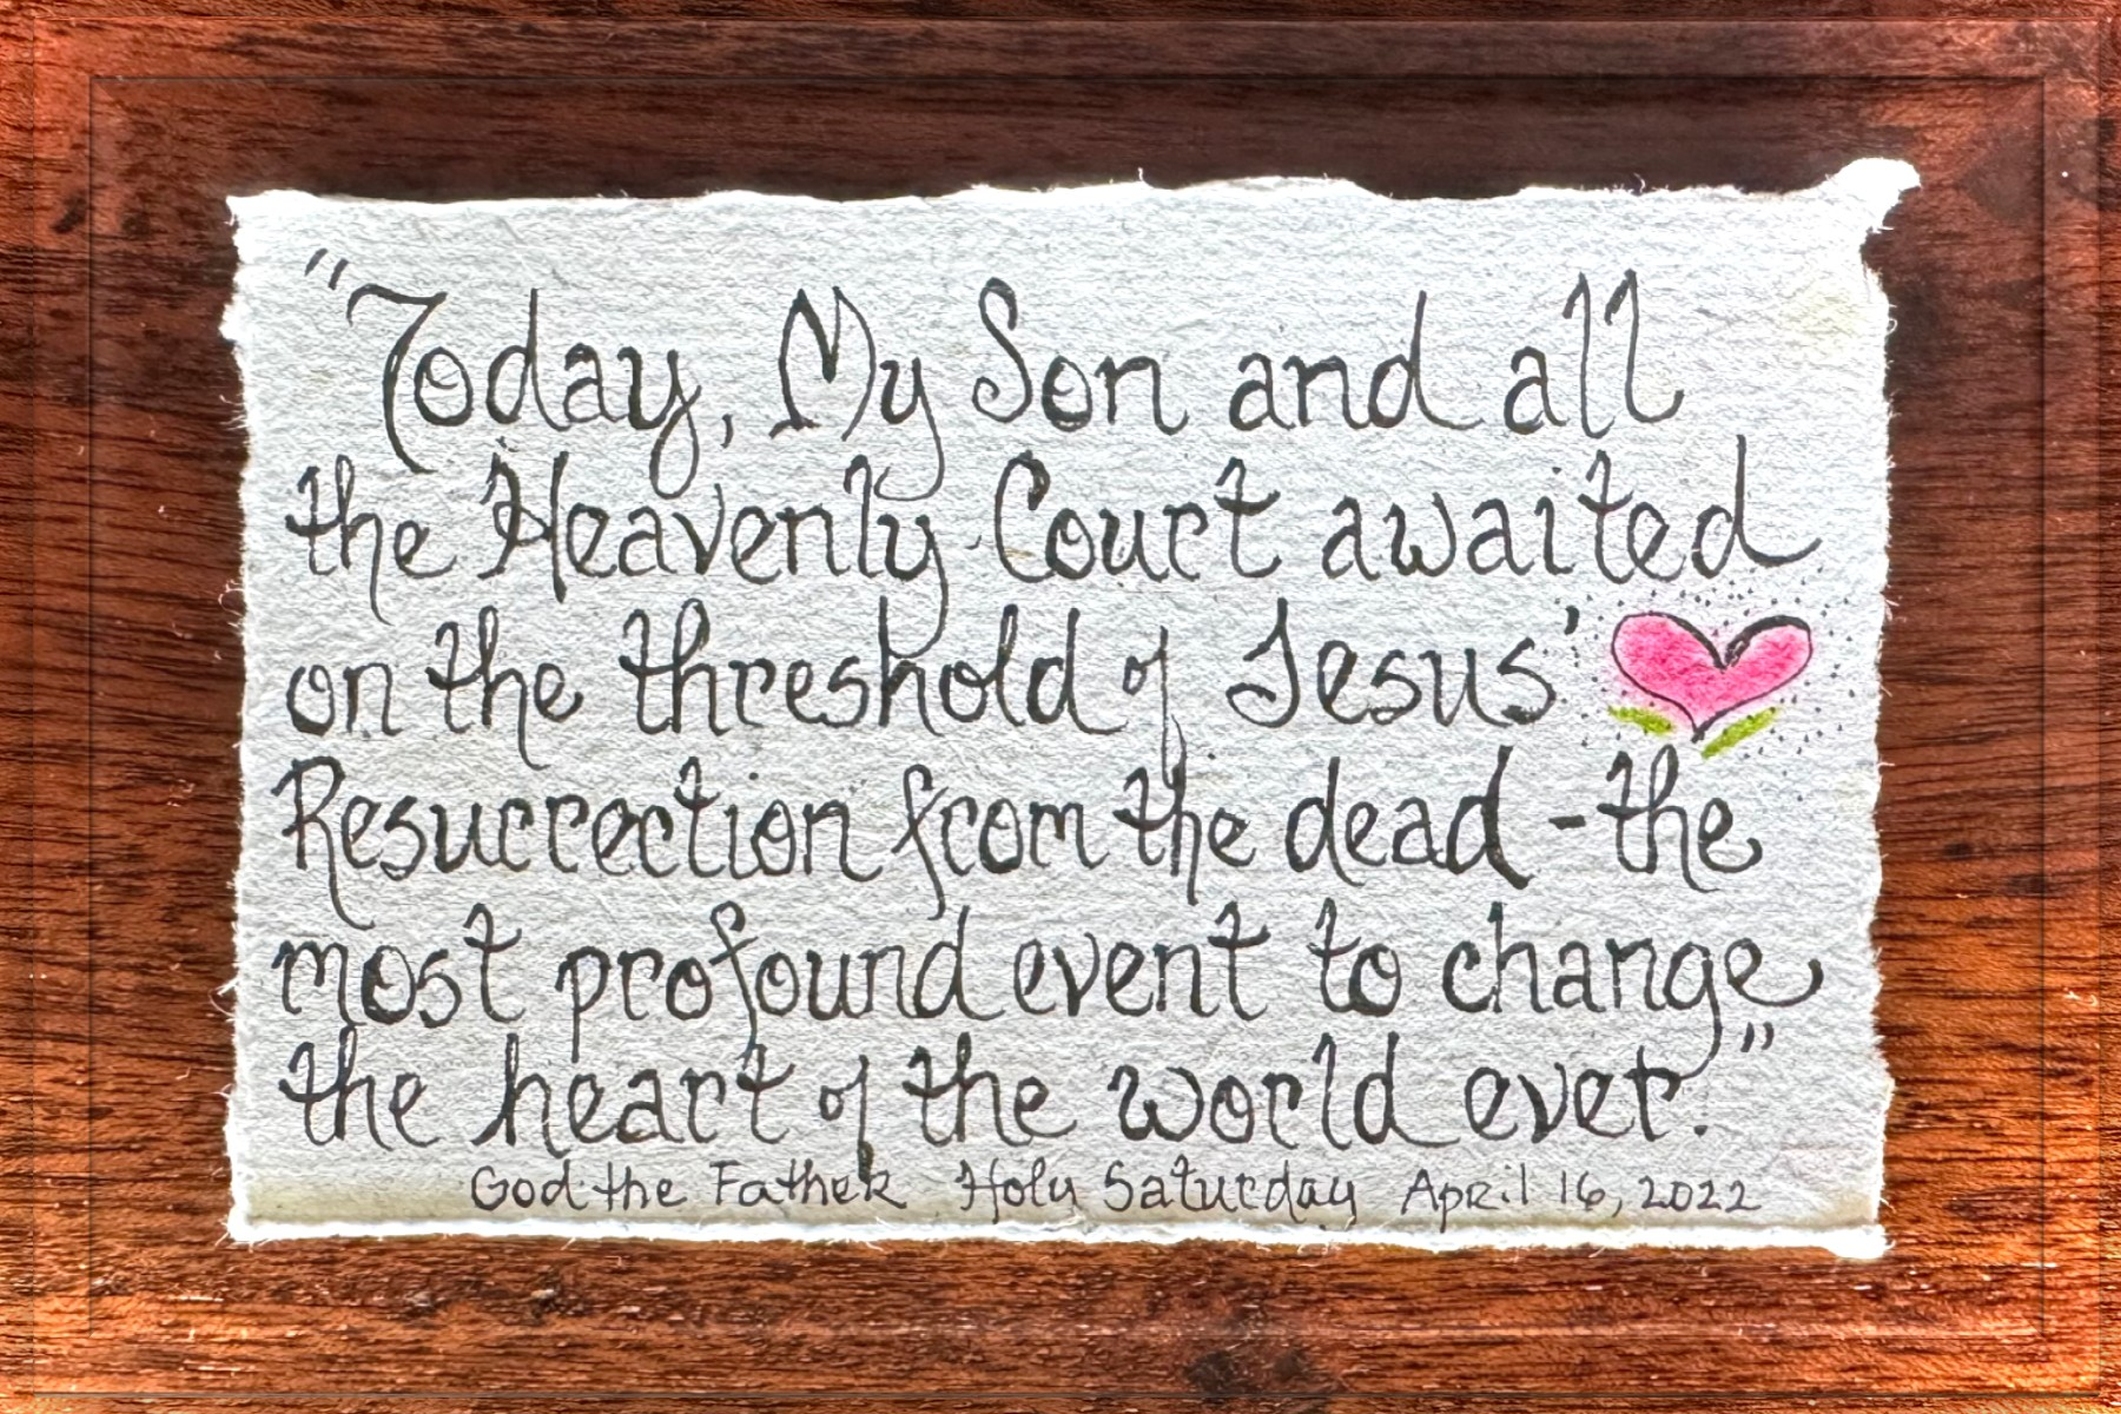 "Today, My Son and all
the Heavenly Court awaited
on the threshold of Jesus'
Resurrection from the dead - the
most profound event to change
the heart of the world ever."
God the Father Holy Saturday April 16, 2022